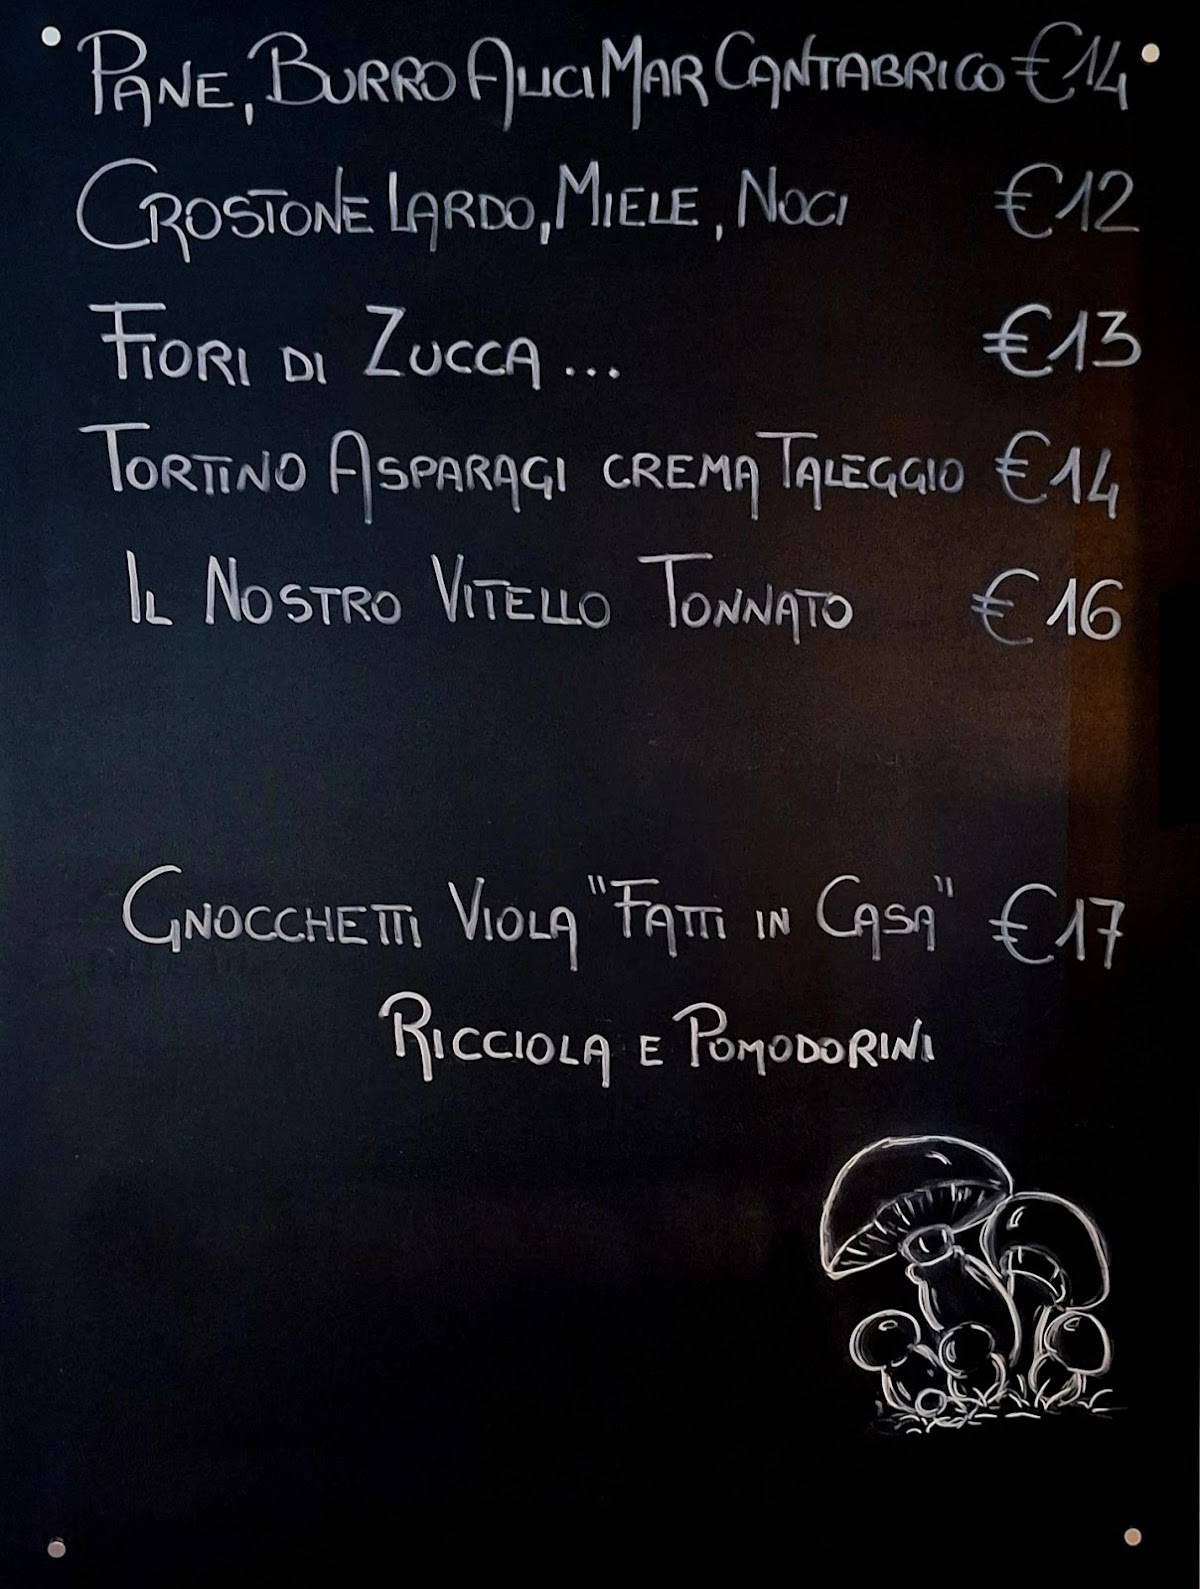 PANE, BURRO ALICI MAR CANTABRICO €14
CROSTONE LARDO, MIELE, NOCI €12
FIORI DI ZUCCA... €13
TORTINO ASPARAGI CREMA TALEGGIO €14
IL NOSTRO VITELLO TONNATO €16
GNOCCHETTI VIOLA "FATTI IN CASA" €17
RICCIOLA E POMODORINI